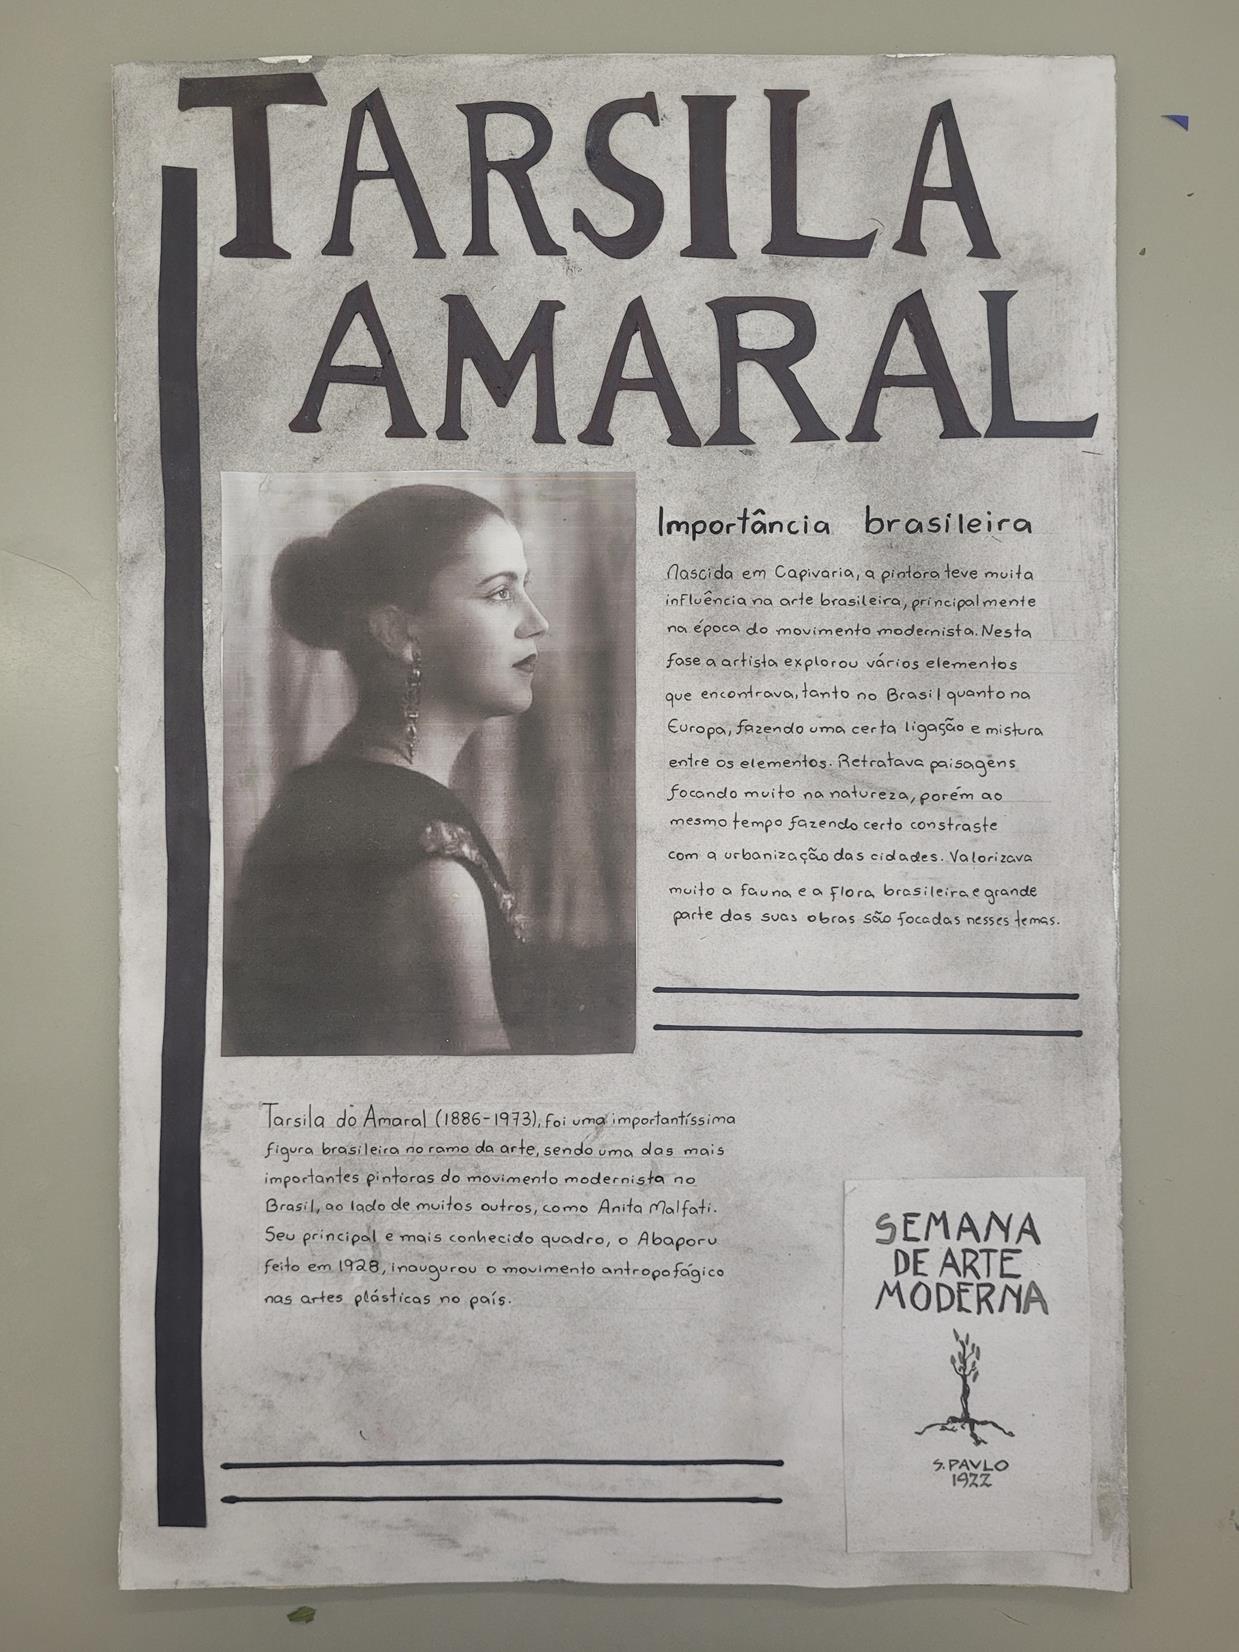 TARSILA
AMARAL
Importância brasileira
Nascida em Capivaria, a pintora teve muita
influência na arte brasileira, principalmente
na época do movimento modernista. Nesta
fase a artista explorou vários elementos
que encontrava, tanto no Brasil quanto na
Europa, fazendo uma certa ligação e mistura
entre os elementos. Retratava paisagens
focando muito na natureza, porém ao
mesmo tempo fazendo certo constraste
com a urbanização das cidades. Valorizava
muito a fauna e a flora brasileira e grande
parte das suas obras são focadas nesses temas.
Tarsila do Amaral (1886-1973), foi uma importantíssima
figura brasileira no ramo da arte, sendo uma das mais
importantes pintoras do movimento modernista no
Brasil, ao lado de muitos outros, como Anita Malfati.
Seu principal e mais conhecido quadro, o Abaporu
feito em 1928, inaugurou o movimento antropofágico
nas artes plásticas no país.
SEMANA
DE ARTE
MODERNA
S. PAVLO
1922